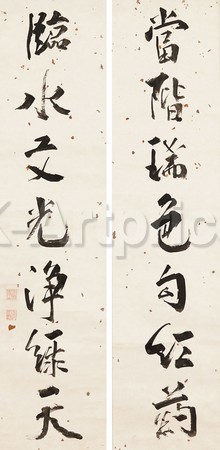 當階瑞色勻紅葯
臨水文光淨綠天
K-Artpric